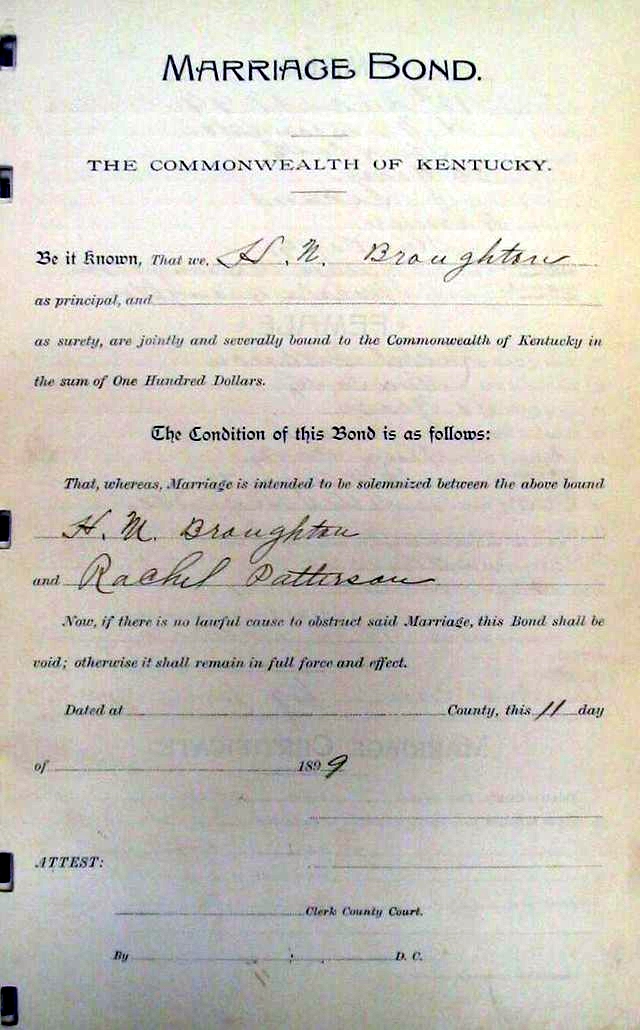 MARRIAGE BOND.
THE COMMONWEALTH OF KENTUCKY.
Be it Known, That we, H. N. Broughton
as principal, and
as surety, are jointly and severally bound to the Commonwealth of Kentucky in
the sum of One Hundred Dollars.
The Condition of this Bond is as follows:
That, whereas, Marriage is intended to be solemnized between the above bound
H. N. Broughton
and Rachel Patterson
Now, if there is no lawful cause to obstruct said Marriage, this Bond shall be
void; otherwise it shall remain in full force and effect.
Dated at County, this 11 day
of 1899
ATTEST:
Clerk County Court.
By D. C.